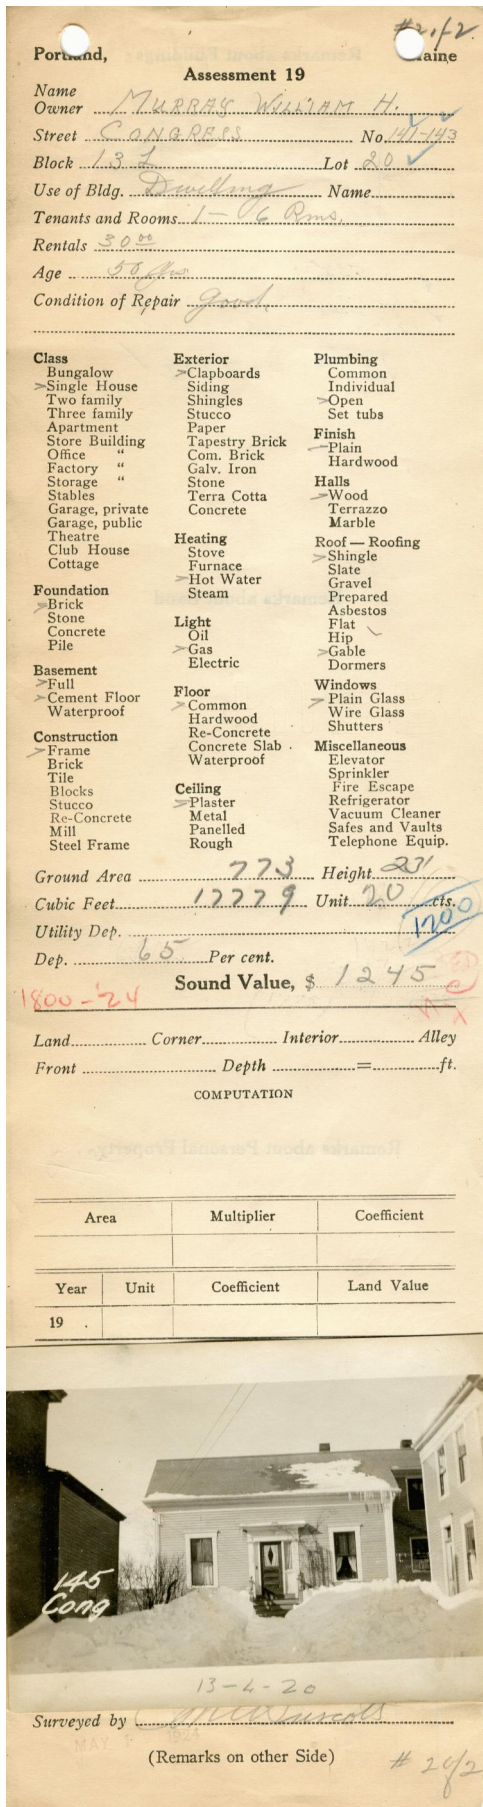 # 2 of 2.
Portland, Maine
Assessment 19
Name
Owner MURRAY WILLIAM H.
Street CONGRESS No. 141-143
Block 13 L Lot 20
Use of Bldg. Dwelling Name
Tenants and Rooms 1 — 6 Rms.
Rentals 30 00
Age 50 Yrs
Condition of Repair good
Class
Bungalow
>Single House
Two family
Three family
Apartment
Store Building
Office "
Factory "
Storage "
Stables
Garage, private
Garage, public
Theatre
Club House
Cottage
Foundation
>Brick
Stone
Concrete
Pile
Basement
>Full
>Cement Floor
Waterproof
Construction
>Frame
Brick
Tile
Blocks
Stucco
Re-Concrete
Mill
Steel Frame
Exterior
>Clapboards
Siding
Shingles
Stucco
Paper
Tapestry Brick
Com. Brick
Galv. Iron
Stone
Terra Cotta
Concrete
Heating
Stove
Furnace
>Hot Water
Steam
Light
Oil
>Gas
Electric
Floor
>Common
Hardwood
Re-Concrete
Concrete Slab
Waterproof
Ceiling
>Plaster
Metal
Panelled
Rough
Plumbing
Common
Individual
>Open
Set tubs
Finish
Plain
Hardwood
Halls
>Wood
Terrazzo
Marble
Roof — Roofing
>Shingle
Slate
Gravel
Prepared
Asbestos
Flat
Hip
>Gable
Dormers
Windows
>Plain Glass
Wire Glass
Shutters
Miscellaneous
Elevator
Sprinkler
Fire Escape
Refrigerator
Vacuum Cleaner
Safes and Vaults
Telephone Equip.
Ground Area 773 Height 23'
Cubic Feet 17779 Unit 20 cts.
Utility Dep. 1200
Dep. 65 Per cent.
Sound Value, $ 1245
1800-'24
Land Corner Interior Alley
Front Depth = ft.
COMPUTATION
Area Multiplier Coefficient
Year Unit Coefficient Land Value
19 .
145
Cong
13-L-20
Surveyed by
(Remarks on other Side)
# 2 of 2